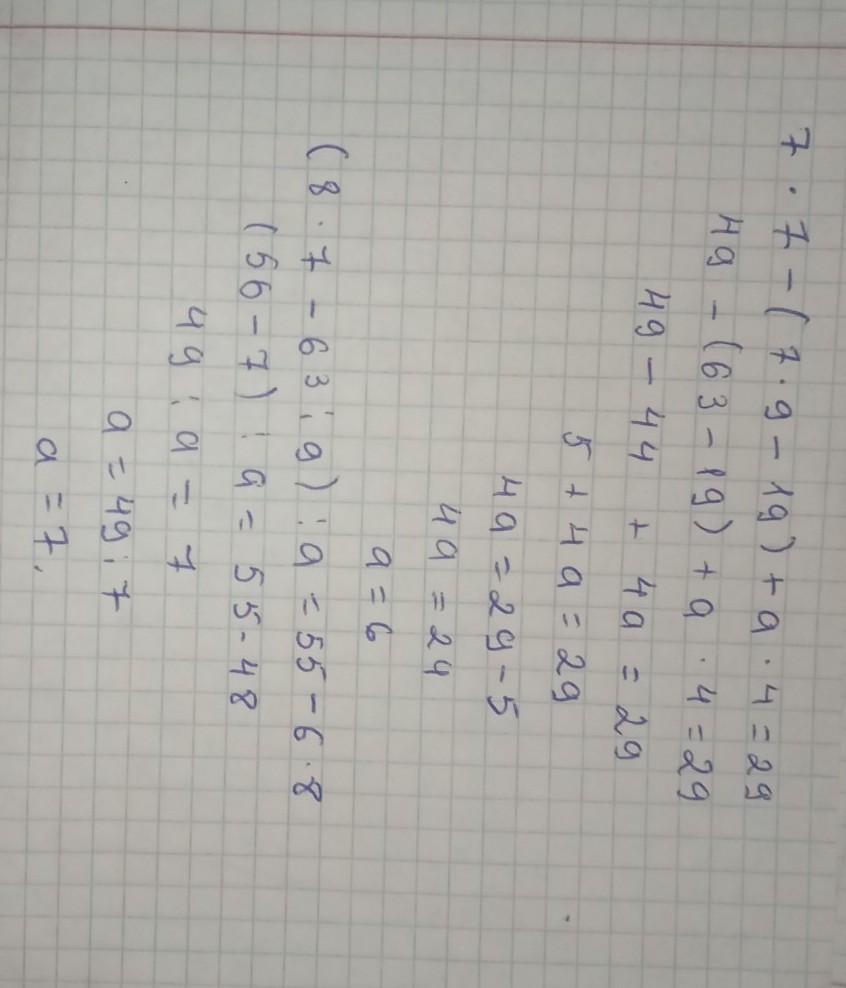 7 · 7 - (7 · 9 - 19) + a · 4 = 29
49 - (63 - 19) + a · 4 = 29
49 - 44 + 4a = 29
5 + 4a = 29
4a = 29 - 5
4a = 24
a = 6
(8 · 7 - 63 : 9) : a = 55 - 6 · 8
(56 - 7) : a = 55 - 48
49 : a = 7
a = 49 : 7
a = 7.